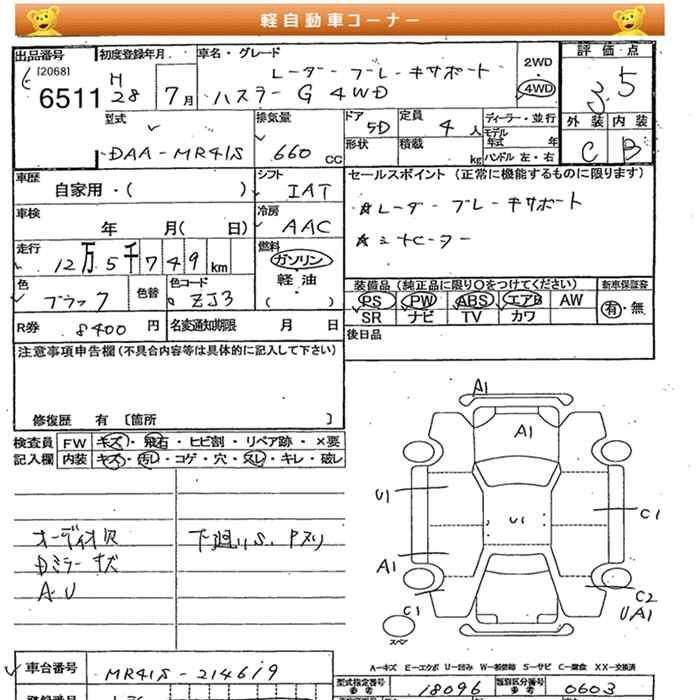 軽自動車コーナー
出品番号 初度登録年月 車名・グレード 評価点
[2068] H レーダーブレーキサポート 2WD
6511 28 7月 ハスラー G 4WD ・4WD 3.5
型式 排気量 ドア 5D 定員 4人 ディーラー・並行 外装 内装
モデル年式 年
DAA-MR41S 660CC 形状 積載 kg ハンドル 左・右 C B
車歴 シフト セールスポイント (正常に機能するものに限ります)
自家用・( ) IAT ☆レーダーブレーキサポート
車検 冷房
年 月( 日) AAC ☆シートヒーター
走行 燃料
12万5千749km ガソリン 装備品 (純正品に限り○をつけてください) 新車保証書
色 色替 色コード 軽油 PS PW ABS エアB AW 有・無
ブラック ZJ3 ( ) SR ナビ TV カワ
R券 8400円 名変通知期限 月 日 後日品
注意事項申告欄(不具合内容等は具体的に記入して下さい)
修復歴 有 〔箇所 〕
検査員 FW キズ・飛石・ヒビ割・リペア跡・×要
記入欄 内装 キズ・汚レ・コゲ・穴・スレ・キレ・破レ
オーディオ欠 下廻りS、Pスリ
Dミラーキズ
A・U
A1
A1
U1
U1
C1
A1
C1
C2
UA1
スペア
車台番号 MR41S-214619
A-キズ E-エクボ U-凹み W-補修跡 S-サビ C-腐食 XX-交換済
型式指定番号 参考 18096 類別区分番号 参考 0603